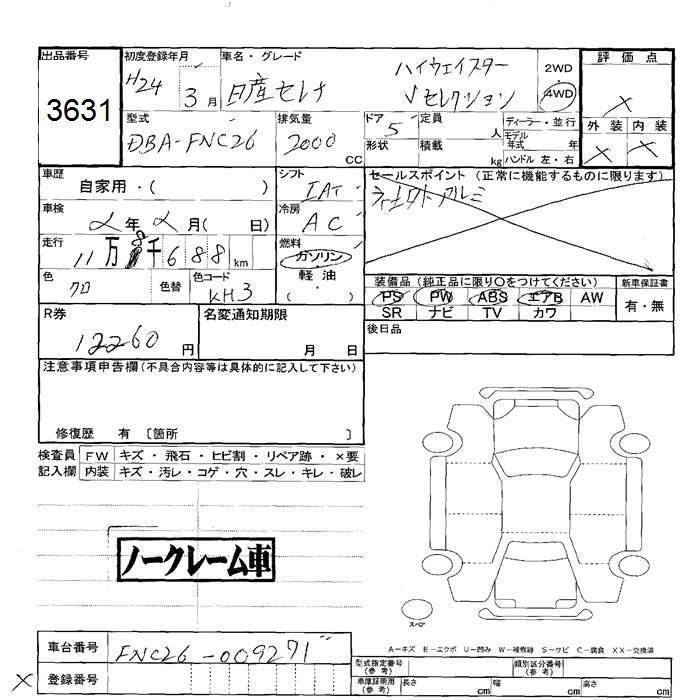 出品番号
3631
初度登録年月
H24 3月
車名・グレード
日産セレナ
ハイウェイスター
Vセレクション
2WD
4WD
評価点
×
外装 内装
× ×
型式
DBA-FNC26
排気量
2000 CC
ドア
5
定員
人
形状
積載
kg
ディーラー・並行
モデル年式 年
ハンドル 左・右
車歴
自家用・( )
シフト
IAT
セールスポイント(正常に機能するものに限ります)
アルミ
車検
年 月( 日)
冷房
AC
走行
11万8千688km
燃料
ガソリン
軽・油
( )
色
クロ
色替
色コード
KH3
装備品(純正品に限り○をつけてください)
PS PW ABS エアB AW
SR ナビ TV カワ
新車保証書
有・無
R券
12260円
名変通知期限
月 日
後日品
注意事項申告欄(不具合内容等は具体的に記入して下さい)
修復歴 有 〔箇所 〕
検査員記入欄
FW キズ・飛石・ヒビ割・リペア跡・×要
内装 キズ・汚レ・コゲ・穴・スレ・キレ・破レ
ノークレーム車
スペア
A−キズ E−エクボ U−凹み W−補修跡 S−サビ C−腐食 XX−交換済
車台番号
FNC26-009271
× 登録番号
型式指定番号(参考)
類別区分番号(参考)
車庫証明用(参考)
長さ cm
幅 cm
高さ cm